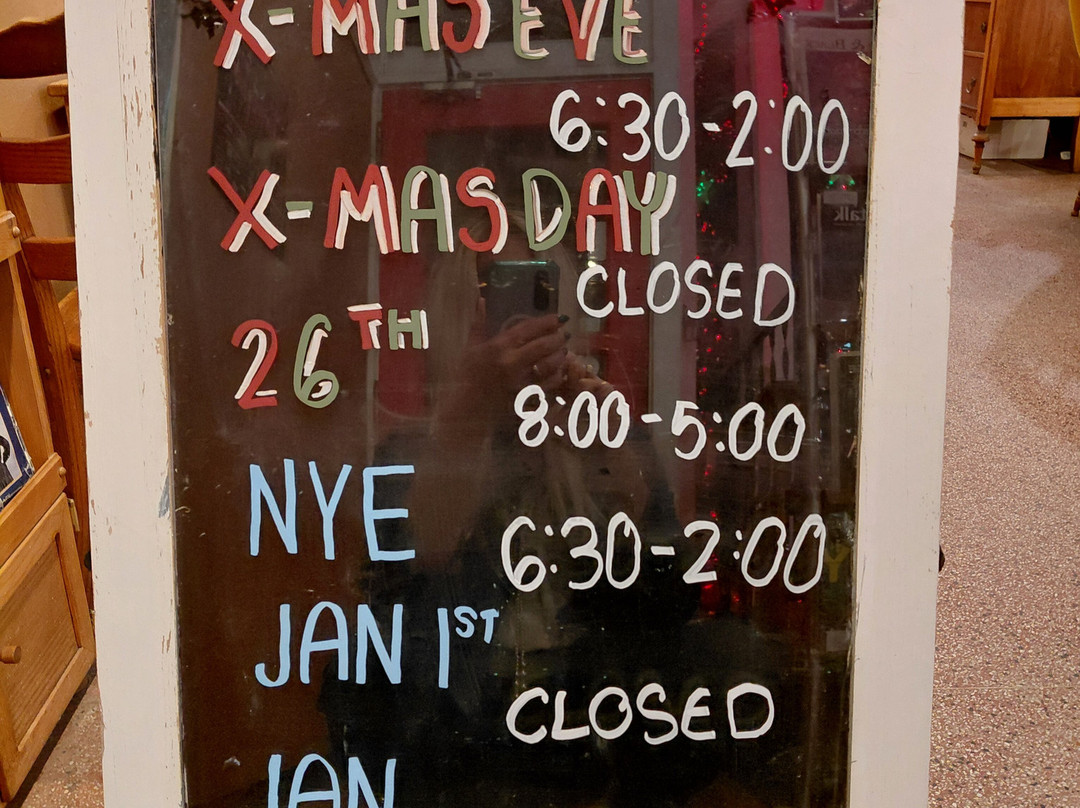 X-MAS EVE
6:30-2:00
X-MAS DAY
CLOSED
26TH
8:00-5:00
NYE
6:30-2:00
JAN 1ST
CLOSED
JAN